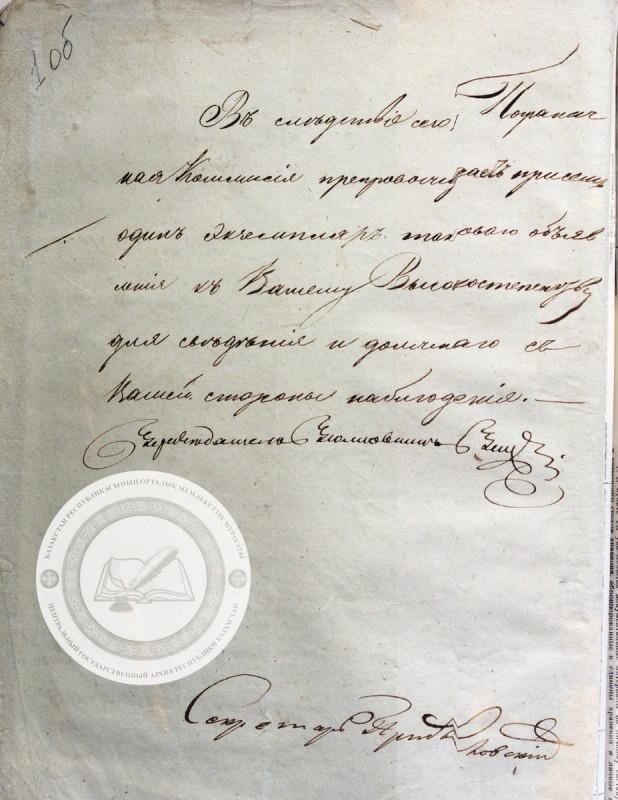 10б
Въ слѣдствіе сего Погранич
ная Коммисія препровождаетъ при семъ
одинъ экземпляръ таковаго объяв
ленія къ Вашему Высокостепенству
для свѣдѣнія и должнаго съ
Вашей стороны наблюденія. —
Предсѣдатель
Секретарь
ҚАЗАҚСТАН РЕСПУБЛИКАСЫНЫҢ ОРТАЛЫҚ МЕМЛЕКЕТТІК МҰРАҒАТЫ
ЦЕНТРАЛЬНЫЙ ГОСУДАРСТВЕННЫЙ АРХИВ РЕСПУБЛИКИ КАЗАХСТАН